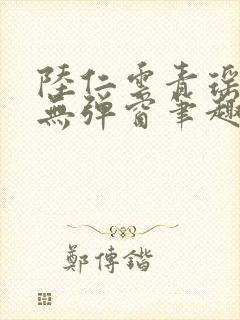 陸仁雲青瑶
無彈窗筆趣
鄭傳鍇